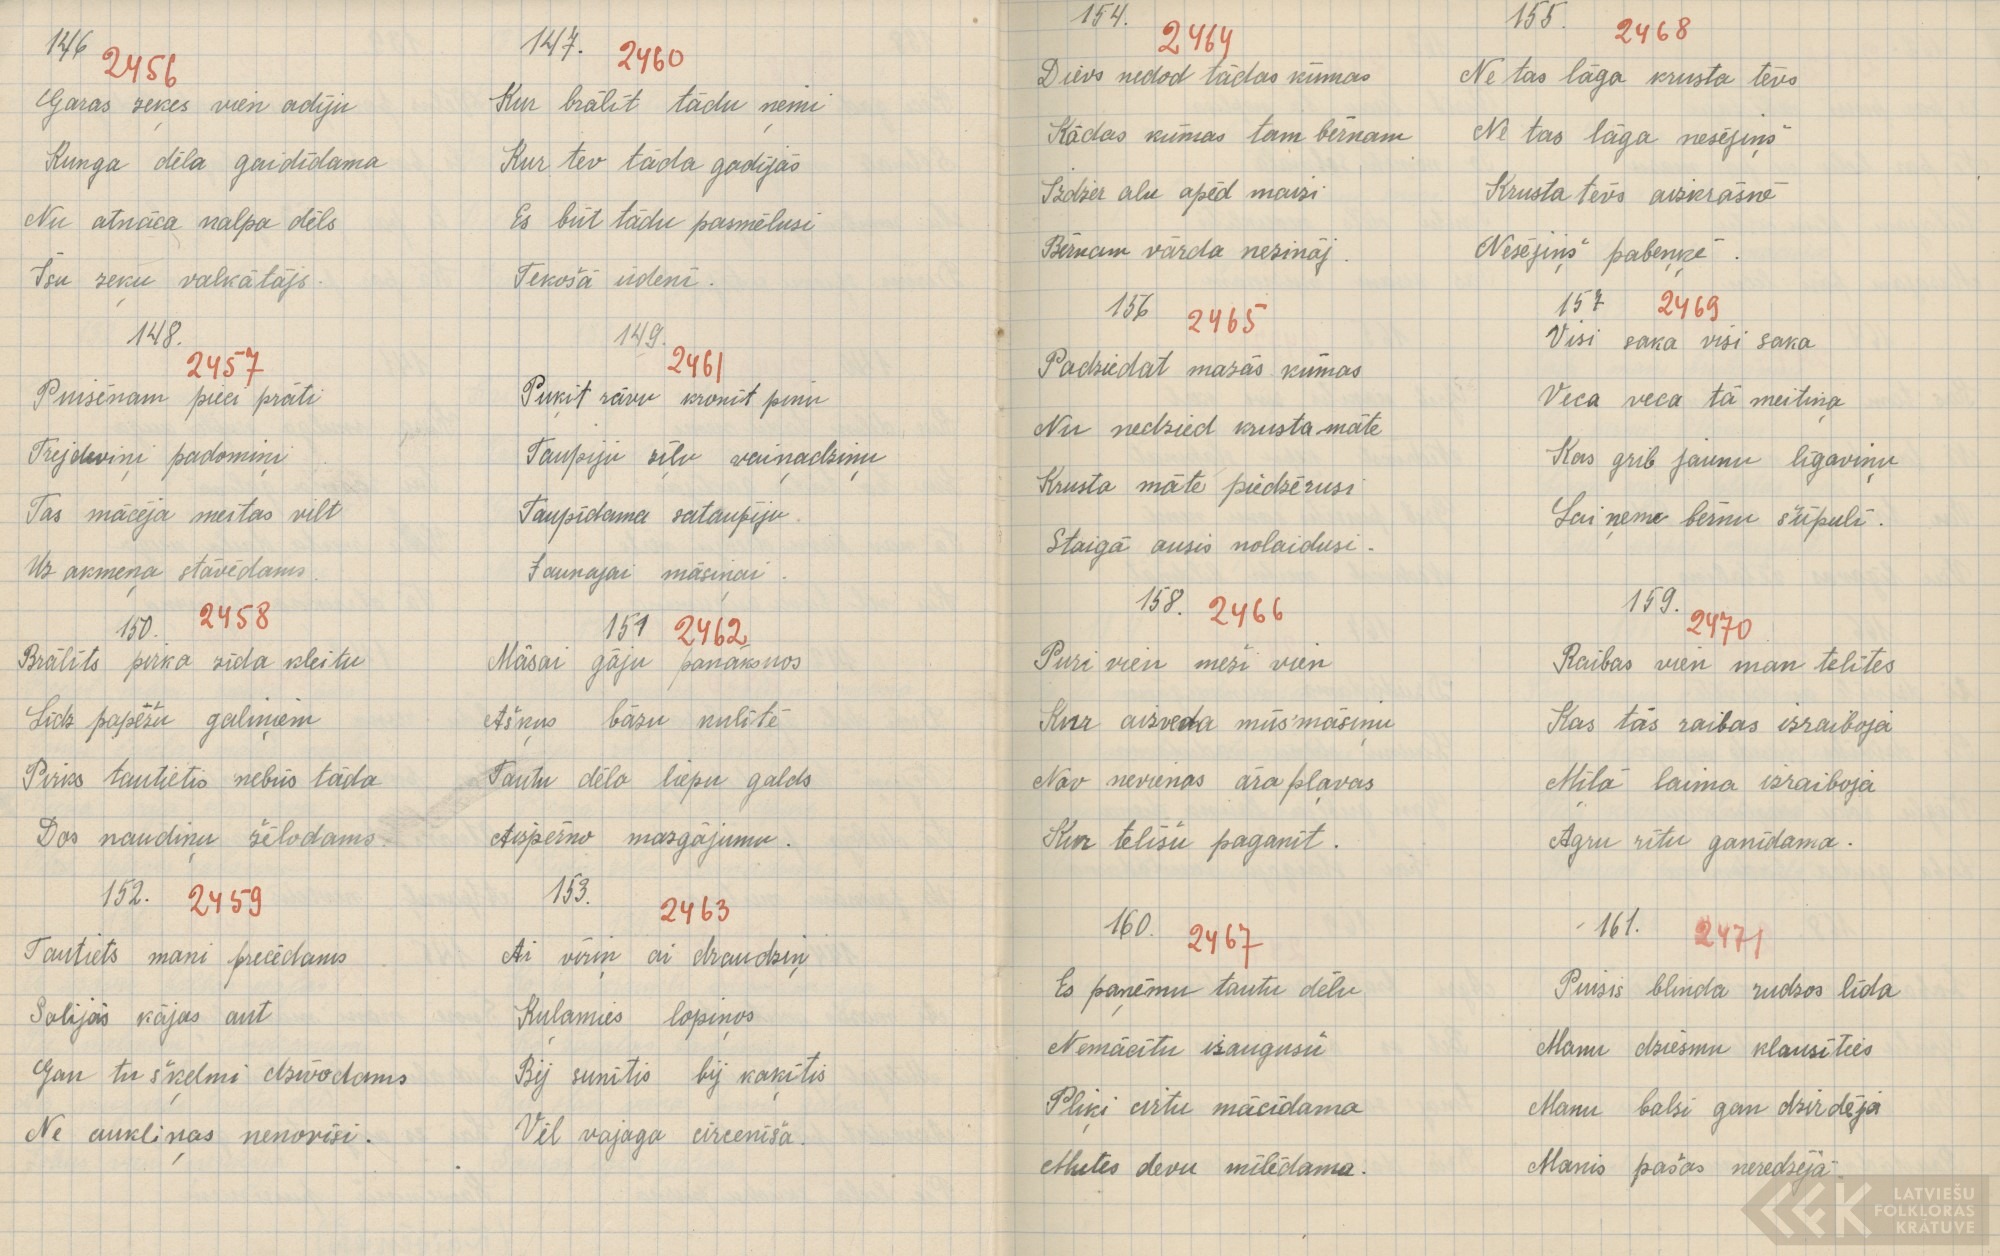 146
2456
Garas zeķes vien adīju
Kunga dēla gaidīdama
Nu atnāca kalpa dēls
Īsu zeķu valkātājs.
148.
2457
Puisēnam pieci prāti
Trejdeviņi padomiņi
Tas mācēja meitas vilt
Uz akmeņa stāvēdams.
150.
2458
Brālīts pirka zīda kleitu
Līdz papēžu galiņiem
Pirks tautietis nebūs tāda
Dos naudiņu žēlodams.
152.
2459
Tautiets mani precēdams
Solijās kājas aut
Gan tu šķelmi dzīvodams
Ne aukliņas nenovīsi.
147.
2460
Kur brālīt tādu ņēmi
Kur tev tāda gadījās
Es būt tādu pasmēlusi
Tekošā ūdenī.
149.
2461
Puķīt rāvu kronīt pinu
Taupiju zīļu vaiņadziņu
Taupīdama sataupīju
Jaunajai māsiņai.
151
2462
Māsai gāju panāksnos
Ašķus bāzu nulītē
Tautu dēla liepu galds
Aizpērno mazgājumu.
153.
2463
Ai vīriņ ai draudziņ
Kulamies lopiņos
Bij sunītis bij kaķītis
Vēl vajaga circenīša.
154.
2464
Dievs nedod tādas kūmas
Kādas kūmas tam bērnam
Izdzer alu apēd maizi
Bērnam vārda nezināj.
156
2465
Padziedat mazās kūmas
Nu nedzied krusta māte
Krusta māte piedzērusi
Staigā ausis nolaidusi.
158.
2466
Puri vien meži vien
Kur aizveda mūs' māsiņu
Nav nevienas āra pļavas
Kur telīšu paganīt.
160.
2467
Es paņēmu tautu dēlu
Nemācītu izaugušu
Pliķi cirtu mācīdama
Mutes devu mīlēdama.
155.
2468
Ne tas lāga krusta tēvs
Ne tas lāga nesējiņš
Krusta tēvs aizkrāsnē
Nesējiņš pabeņķē.
157
2469
Visi saka visi saka
Veca veca tā meitiņa
Kas grib jaunu līgaviņu
Lai ņeme bērnu šūpulī.
159.
2470
Raibas vien man telītes
Kas tās raibas izraiboja
Mīļā laima izraiboja
Agru rītu ganīdama.
161.
2471
Puisis blinda rudzos līda
Manu dziesmu klausīties
Manu balsi gan dzirdēja
Manis pašas neredzēja.
LATVIEŠU
FOLKLORAS
KRĀTUVE